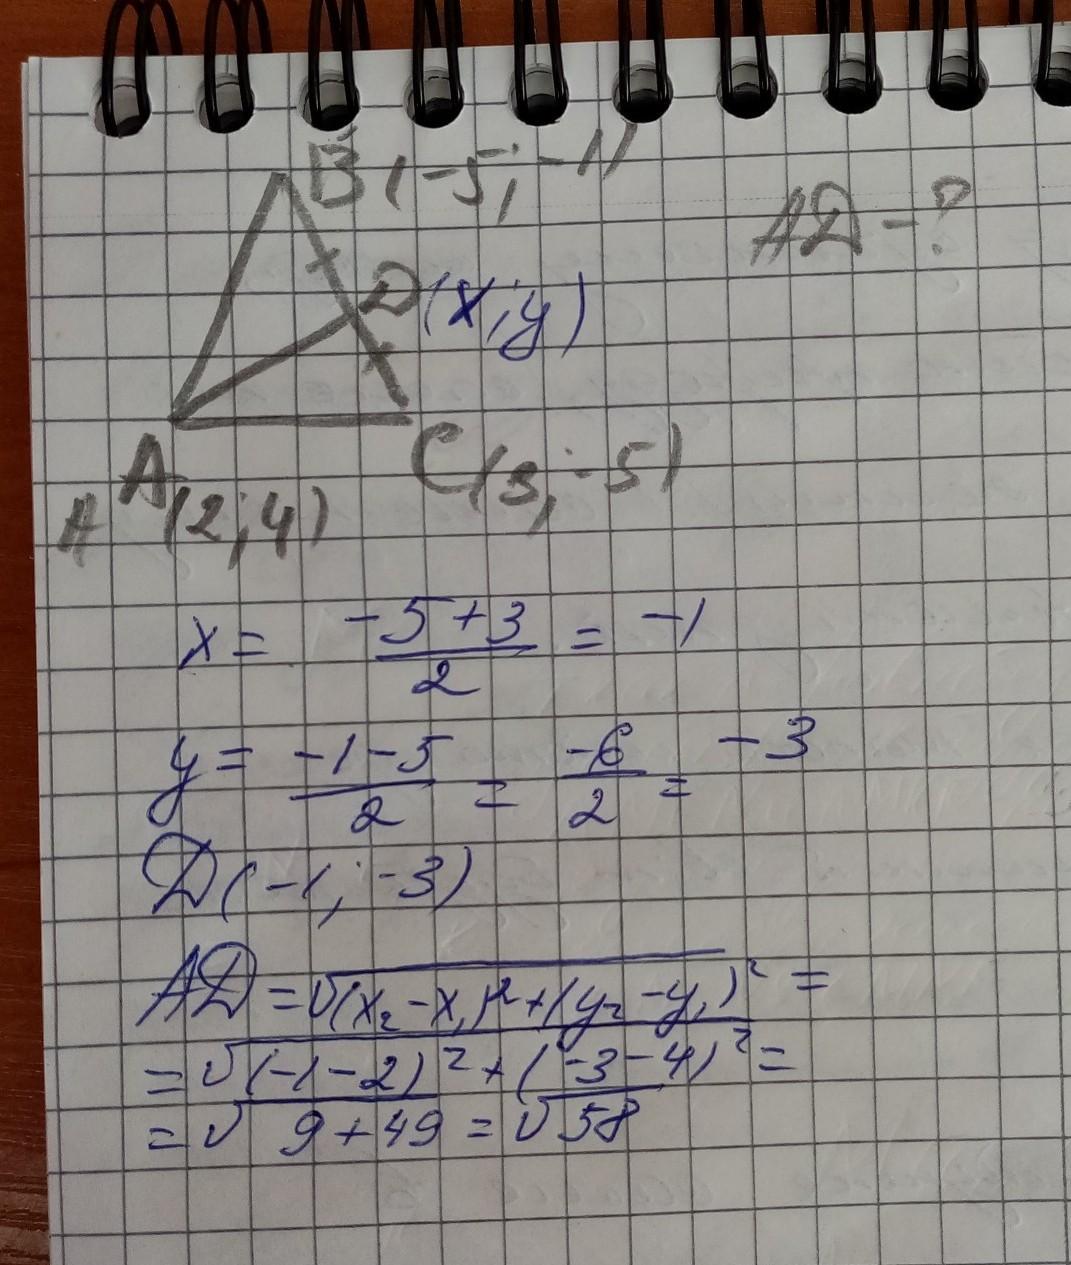 B(-5; -1)
AD - ?
D(x; y)
A(2; 4)
C(3; -5)
A
x = \frac{-5+3}{2} = -1
y = \frac{-1-5}{2} = \frac{-6}{2} = -3
D(-1; -3)
AD = √(x₂-x₁)²+(y₂-y₁)² =
= √(-1-2)²+(-3-4)² =
= √9+49 = √58